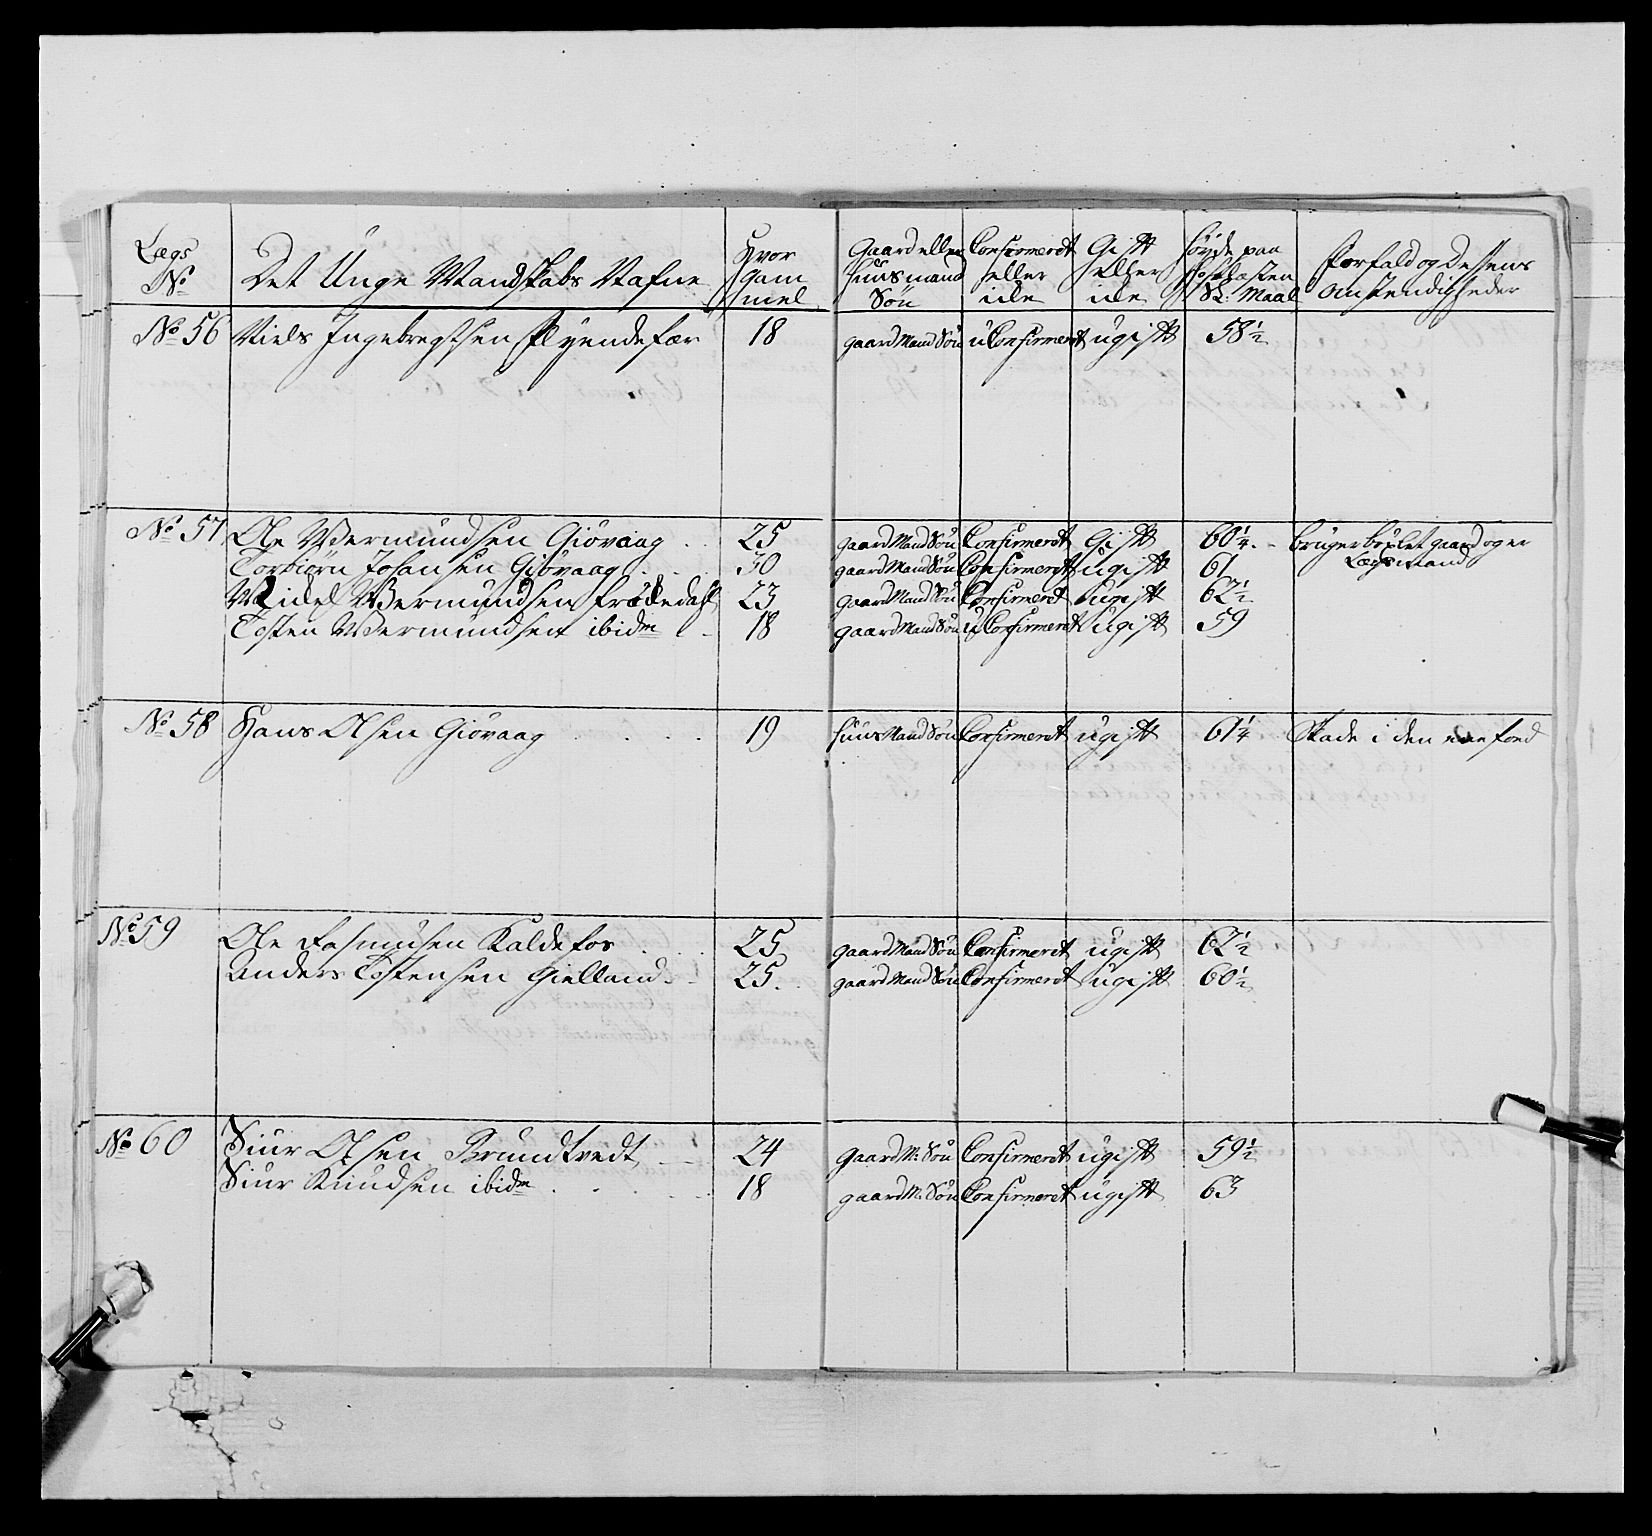 Lægs No Det Unge Mandskabs Nafne Hvor gam mel Gaard eller Huusmand Søn Confirmeret eller icke Gift eller icke Høyde paa Sk: Maal Forfald og Dessens Omstendigheder
No 56 Niels Ingebregtsen 18 gaard Mand Søn uConfirmeret ugift 58½
No 57 Ole Wermundsen Giövaag 25 gaard Mand Søn Confirmeret Gift 60¼ brugerböxlet gaard og er Lægsmand
Torbiørn Johansen Giövaag 30 gaard Mand Søn Confirmeret ugift 61
Wermundsen 23 gaard Mand Søn Confirmeret ugift 62½
Tosten Wermundsen ibidm 18 gaard Mand Søn uConfirmeret ugift 59
No 58 Hans Olsen Giövaag 19 Huus Mand Søn Confirmeret ugift 61¼ Skade i den ene foed
No 59 Ole Rasmusen Kaldefos 25 gaard Mand Søn Confirmeret ugift 62½
Anders Tostensen Gielland 25 gaard Mand Søn Confirmeret ugift 60½
No 60 Siur Olsen Brundtvedt 24 gaard M. Søn Confirmeret ugift 59½
Siur Knudsen ibidm 18 gaard M. Søn Confirmeret ugift 63